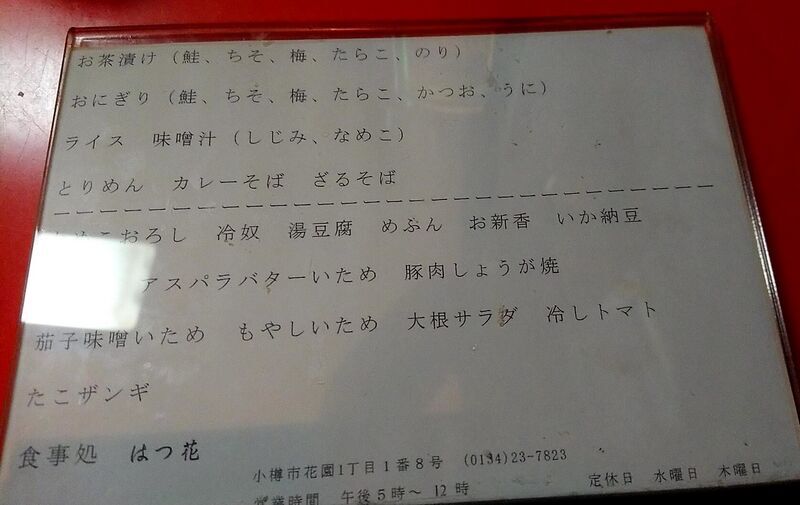 お茶漬け（鮭、ちそ、梅、たらこ、のり）
おにぎり（鮭、ちそ、梅、たらこ、かつお、うに）
ライス 味噌汁（しじみ、なめこ）
とりめん カレーそば ざるそば
おろし 冷奴 湯豆腐 めふん お新香 いか納豆
アスパラバターいため 豚肉しょうが焼
茄子味噌いため もやしいため 大根サラダ 冷しトマト
たこザンギ
食事処 はつ花
小樽市花園1丁目1番8号 (0134)23-7823
営業時間 午後5時～12時 定休日 水曜日 木曜日